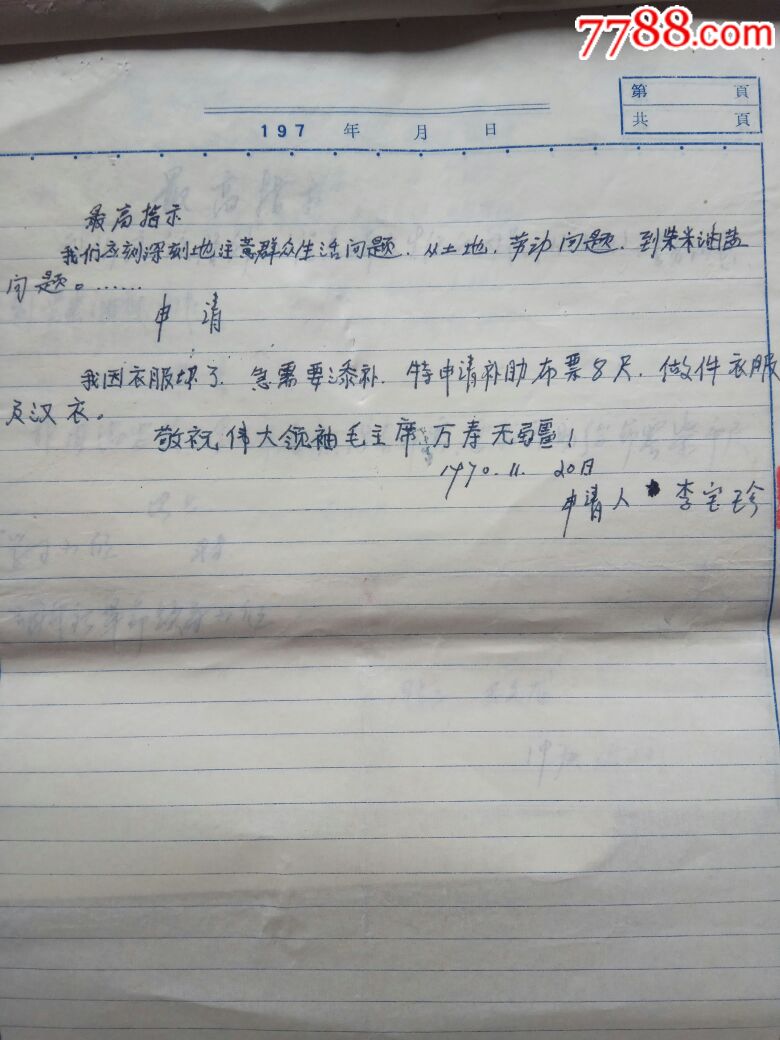 7788.com
第 頁
共 頁
197 年 月 日
最高指示
我们应刻深刻地注意群众生活问题．从土地，劳动问题．到柴米油盐
问题。……
申请
我因衣服坏了．急需要添补．特申请补助布票8尺．做件衣服
及汉衣。
敬祝伟大领袖毛主席万寿无疆！
1970.11.20日
申请人 李宝珍